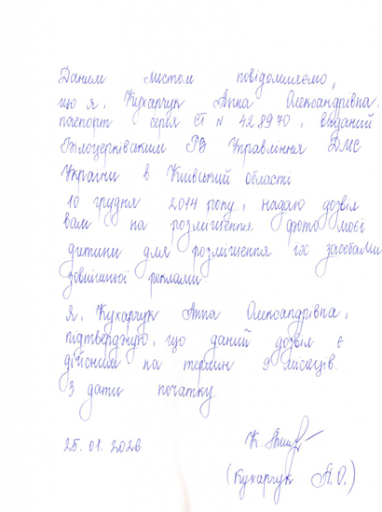 Даним листом повідомляємо,
що я, Кухарчук Анна Олександрівна.
паспорт серія СТ N 428970, виданий
Білоцерківським РВ Управління ДМС
України в Київській області
10 грудня 2014 року, надаю дозвіл
вам на розміщення фото моєї
дитини для розміщення їх засобами
зовнішньої реклами.
Я, Кухарчук Анна Олександрівна,
підтверджую, що даний дозвіл є
дійсним на термін 9 місяців.
З дати початку
25.01.2026 К.
(Кухарчук А.О.)